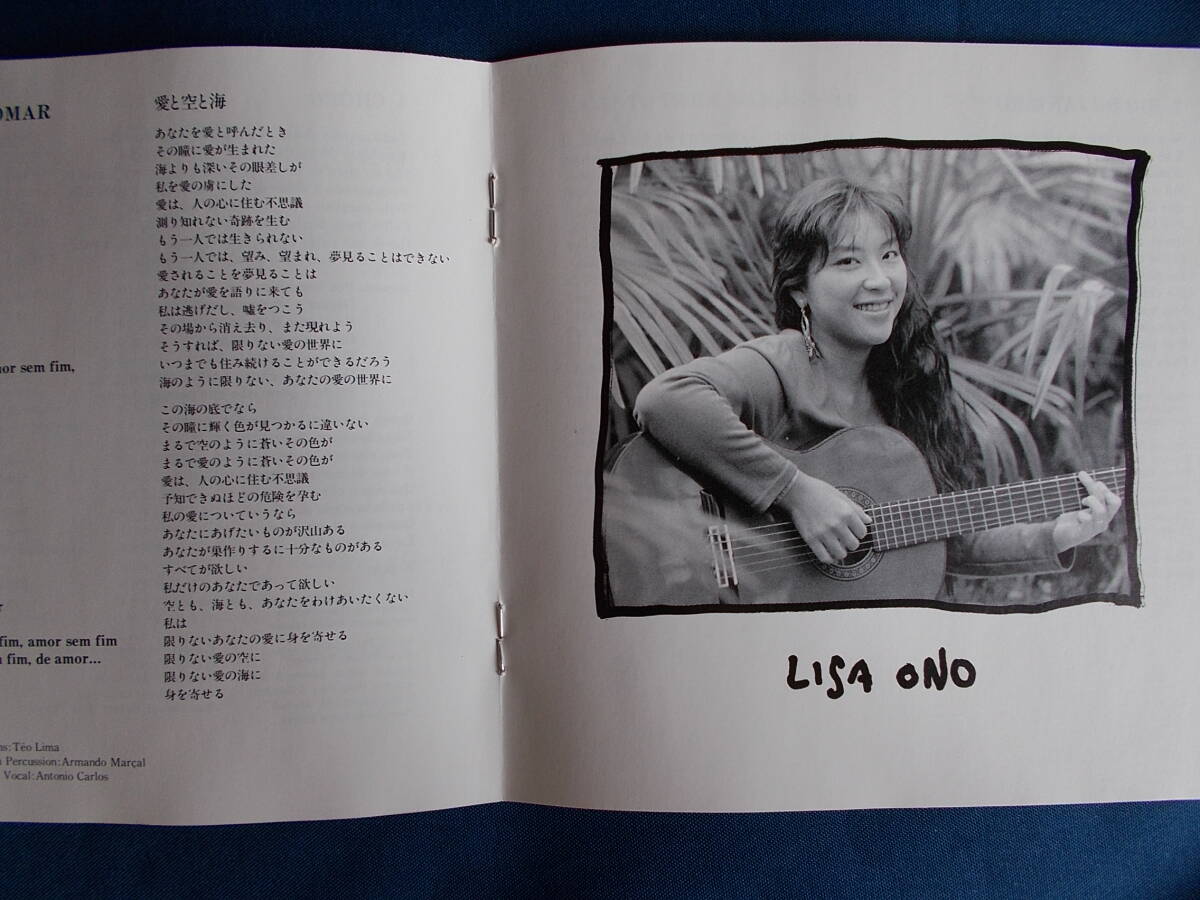 OMAR
or sem fim,
fim, amor sem fim
fim, de amor...
Téo Lima
Percussion: Armando Marçal
Vocal: Antonio Carlos
愛と空と海
あなたを愛と呼んだとき
その瞳に愛が生まれた
海よりも深いその眼差しが
私を愛の虜にした
愛は、人の心に住む不思議
測り知れない奇跡を生む
もう一人では生きられない
もう一人では、望み、望まれ、夢見ることはできない
愛されることを夢見ることは
あなたが愛を語りに来ても
私は逃げだし、嘘をつこう
その場から消え去り、また現れよう
そうすれば、限りない愛の世界に
いつまでも住み続けることができるだろう
海のように限りない、あなたの愛の世界に
この海の底でなら
その瞳に輝く色が見つかるに違いない
まるで空のように蒼いその色が
まるで愛のように蒼いその色が
愛は、人の心に住む不思議
予知できぬほどの危険を孕む
私の愛についていうなら
あなたにあげたいものが沢山ある
あなたが巣作りするに十分なものがある
すべてが欲しい
私だけのあなたであって欲しい
空とも、海とも、あなたをわけあいたくない
私は
限りないあなたの愛に身を寄せる
限りない愛の空に
限りない愛の海に
身を寄せる
LISA ONO